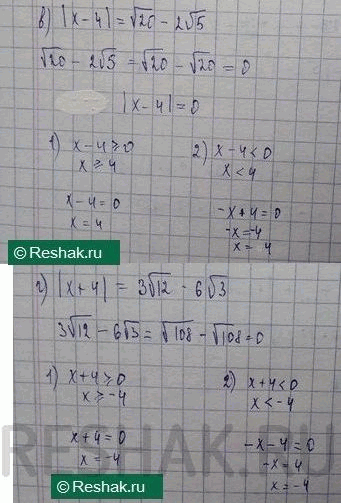 в) |x-4| = √20 - 2√5
√20 - 2√5 = √20 - √20 = 0
|x-4| = 0
1) x-4 ≥ 0
x ≥ 4
x-4 = 0
x = 4
2) x-4 < 0
x < 4
-x+4 = 0
-x = -4
x = 4
Reshak.ru
г) |x+4| = 3√12 - 6√3
3√12 - 6√3 = √108 - √108 = 0
1) x+4 ≥ 0
x ≥ -4
x+4 = 0
x = -4
2) x+4 < 0
x < -4
-x-4 = 0
-x = 4
x = -4
RESHAK.RU
Reshak.ru